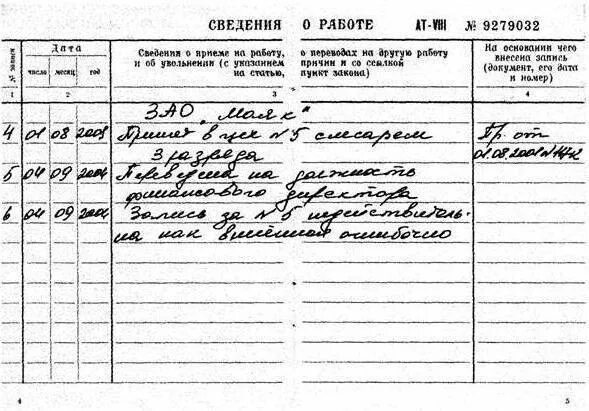 СВЕДЕНИЯ О РАБОТЕ АТ-VIII № 9279032
№ записи
Дата
число месяц год
Сведения о приеме на работу, о переводах на другую работу
и об увольнении (с указанием причин и со ссылкой
на статью, пункт закона)
На основании чего
внесена запись
(документ, его дата
и номер)
1 2 3 4
ЗАО „Маяк"
4 01 08 Принят в цех №5 слесарем Пр. от
3 разряда 01.08.2001 №
5 04 09 2001 Переведен на должность
финансового директора
6 04 09 2001 Запись за №5 недействитель-
на как внесённая ошибочно
4 5